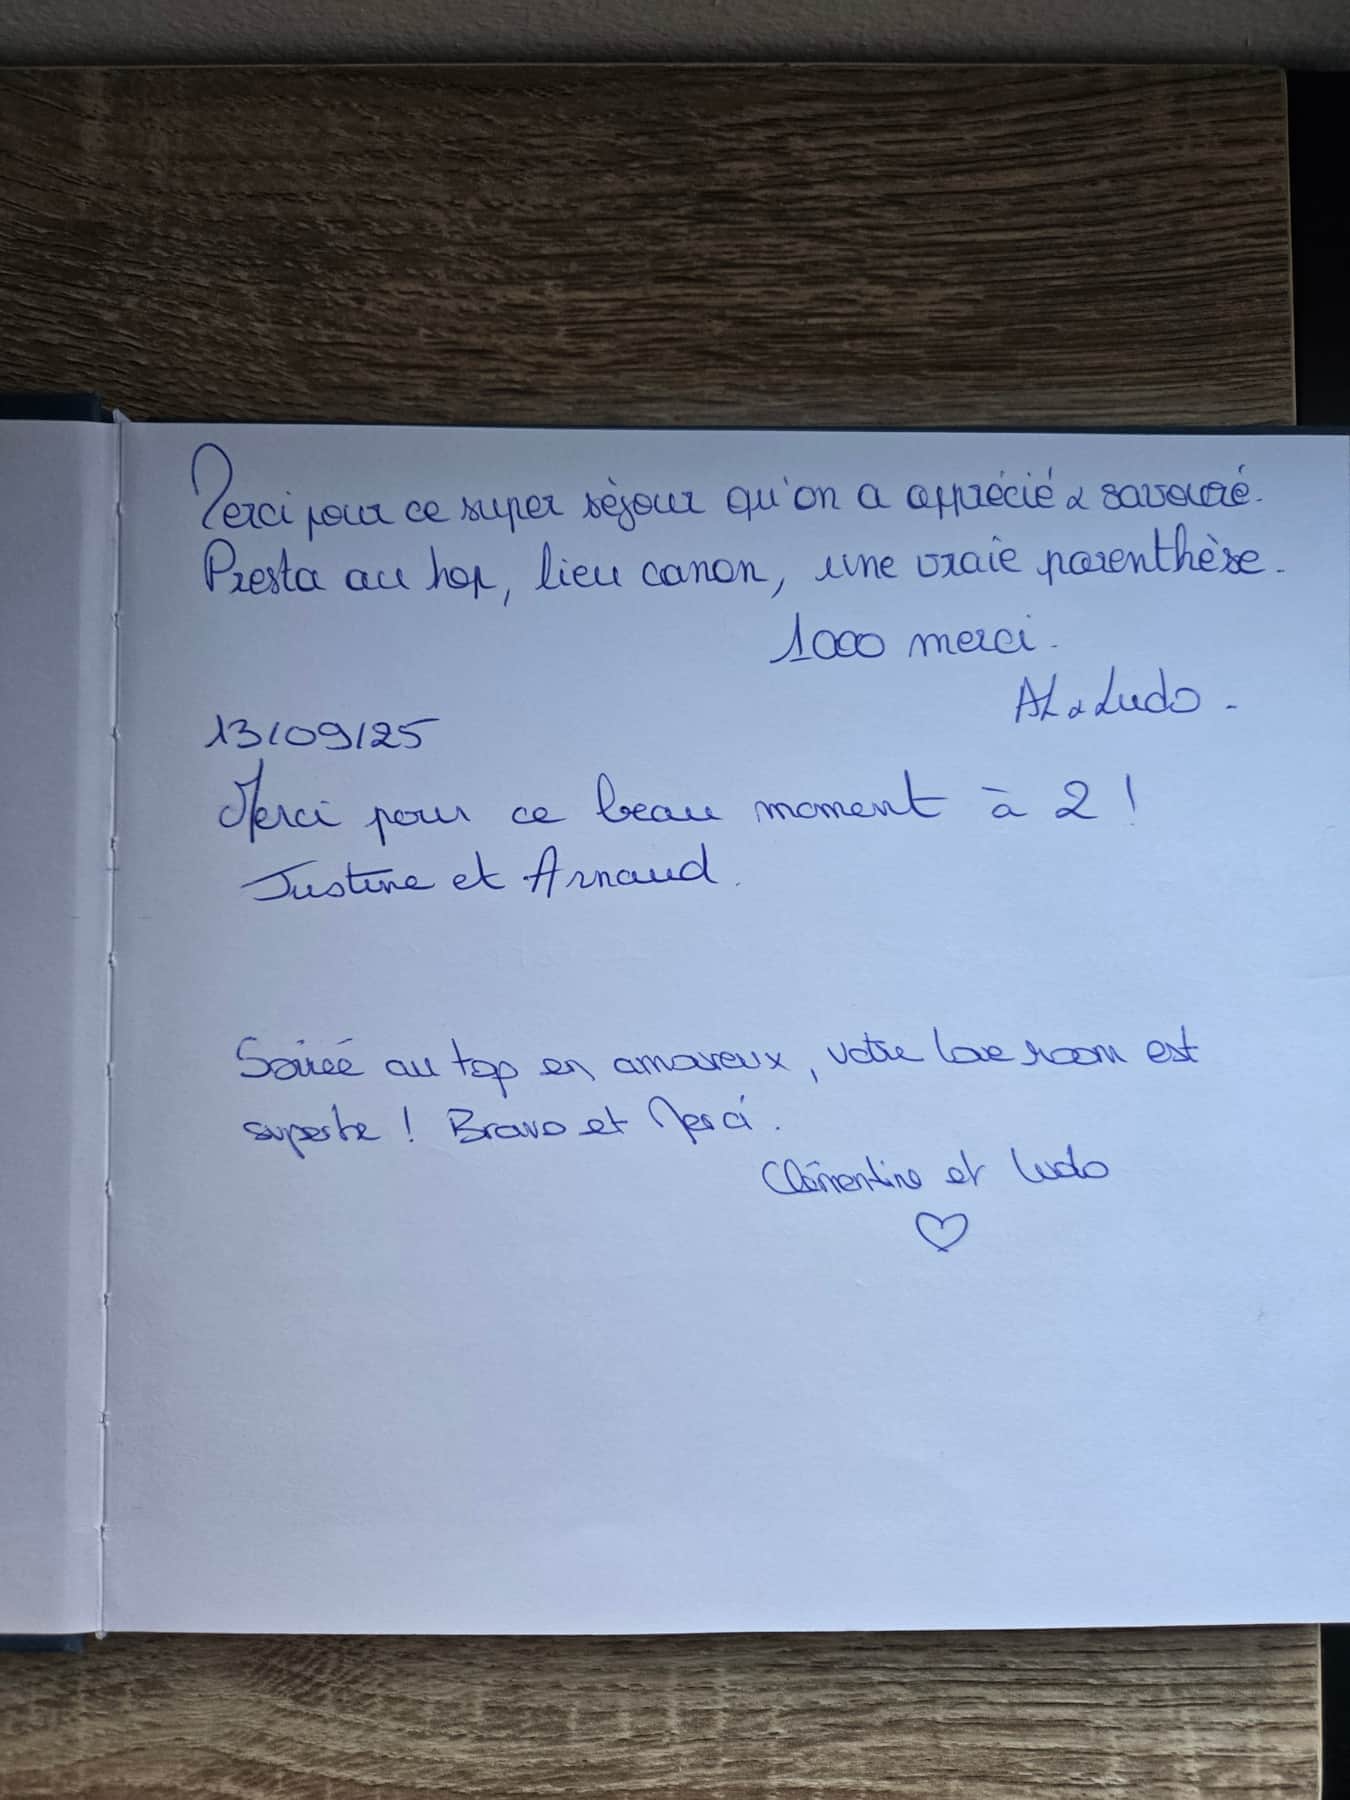 Merci pour ce super séjour qu'on a apprécié & savouré.
Presta au top, lieu canon, une vraie parenthèse.
1000 merci.
AL & Ludo.
13/09/25
Merci pour ce beau moment à 2 !
Justine et Arnaud.
Soirée au top en amoureux, votre love room est
superbe ! Bravo et Merci.
Clémentine et Ludo